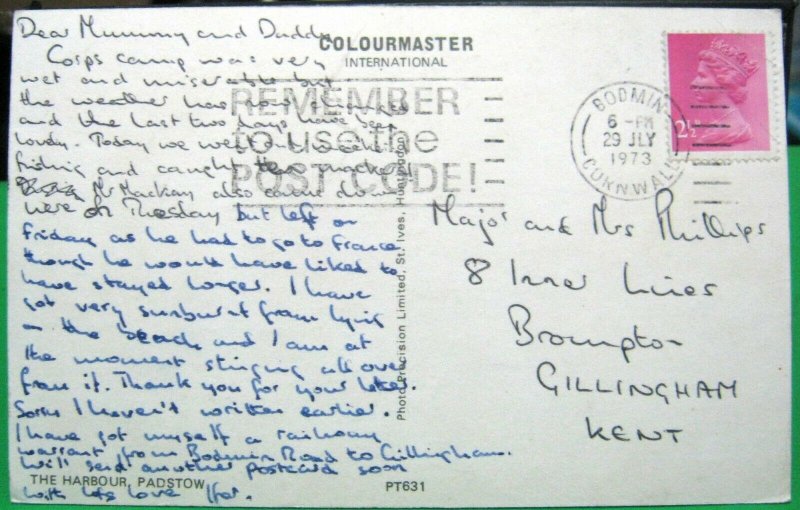 Dear Mummy and Daddy
Corps camp was very
wet and miserable but
the weather has now
and the last two days have been
lovely. Today we went
fishing and caught ten mackerel
Mr Mackay also came down
were on Tuesday but left on
Friday as he had to go to France
though he would have liked to
have stayed longer. I have
got very sunburnt from lying
on the beach and I am at
the moment stinging all over
from it. Thank you for your letter.
Sorry I haven't written earlier.
I have got myself a railway
warrant from Bodmin Road to Gillingham.
Will send another postcard soon
with lots love
THE HARBOUR, PADSTOW
PT631
COLOURMASTER
INTERNATIONAL
REMEMBER
to use the
POST CODE!
Photo Precision Limited, St. Ives, Huntingdon
BODMIN
6 - PM
29 JLY
1973
CORNWALL
2½
Major and Mrs Phillips
8 Inner Lines
Brompton
GILLINGHAM
KENT